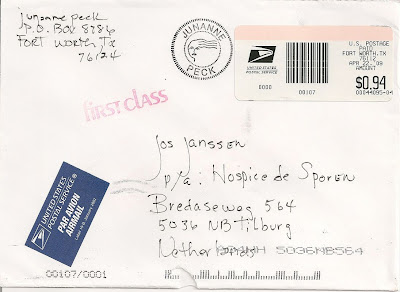 Junanne Peck
P.O. Box 8786
FORT WORTH, TX
76124
JUNANNE
PECK
UNITED STATES
POSTAL SERVICE
0000
00107
U.S. POSTAGE
PAID
FORT WORTH, TX
76112
APR 22, '09
AMOUNT
$0.94
00044095-04
first class
Jos Janssen
p/a: Hospice de Sporen
Bredaseweg 564
5036 NB Tilburg
Netherlands
5036NB564
UNITED STATES
POSTAL SERVICE®
PAR AVION
AIRMAIL
00107/0001